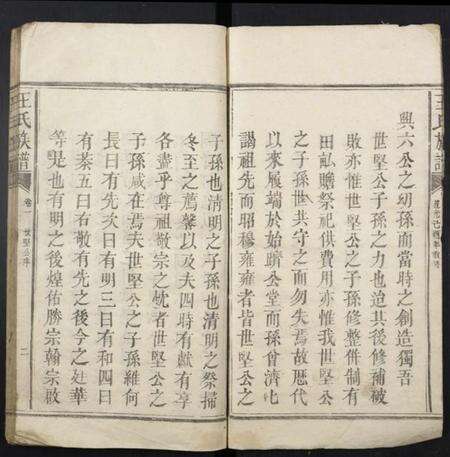 王氏族譜
興六公之幼孫而當時之創造獨吾
世堅公子孫之力也迨其後修補被
敗亦惟世堅公之子孫修整併制有
田畆贍祭祀供費用亦惟我世堅公
之子孫世共守之而勿失焉故歷代
以來履端於始瞻公堂而孫曾濟七
謁祖先而昭穆雍雍者皆世堅公之
子孫也清明之子孫也清明之祭掃
冬至之薦馨以及夫四時有獻有享
各盡乎尊祖敬宗之忱者世堅公之
子孫咸在焉夫世堅公之子孫維何
長曰有先次曰有明三曰有和四曰
有茶五曰有敬有先之後今之廷華
等是也有明之後煌佑勝宗翰宗敬
王氏族譜
卷一
世堅公序
二